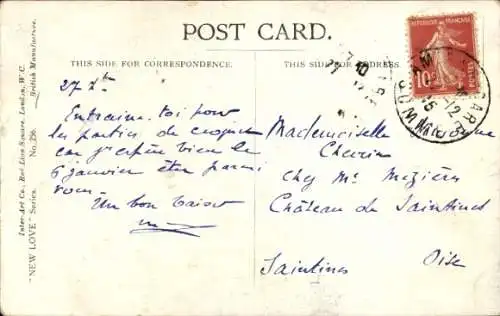 POST CARD.
THIS SIDE FOR CORRESPONDENCE.
THIS SIDE FOR ADDRESS.
Inter-Art Co., Red Lion Square, London, W.C.
British Manufacture.
"NEW LOVE" Series. No. 256.
REPUBLIQUE FRANÇAISE
10
POSTES
27 Xbre
Entraine-toi pour
les parties de croquet
car j'espère bien le
6 janvier être parmi
vous
Un bon baiser
Mademoiselle
chez Mr Mezières
Château de Saintines
Saintines Oise